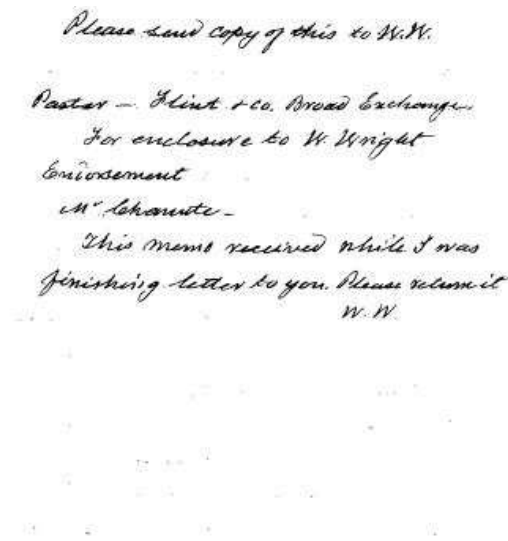 Please send copy of this to W.W.
Pastor — Flint & Co. Broad Exchange.
For enclosure to W. Wright
Endorsement
Mr Chanute —
This memo received while I was
finishing letter to you. Please return it
W. W.